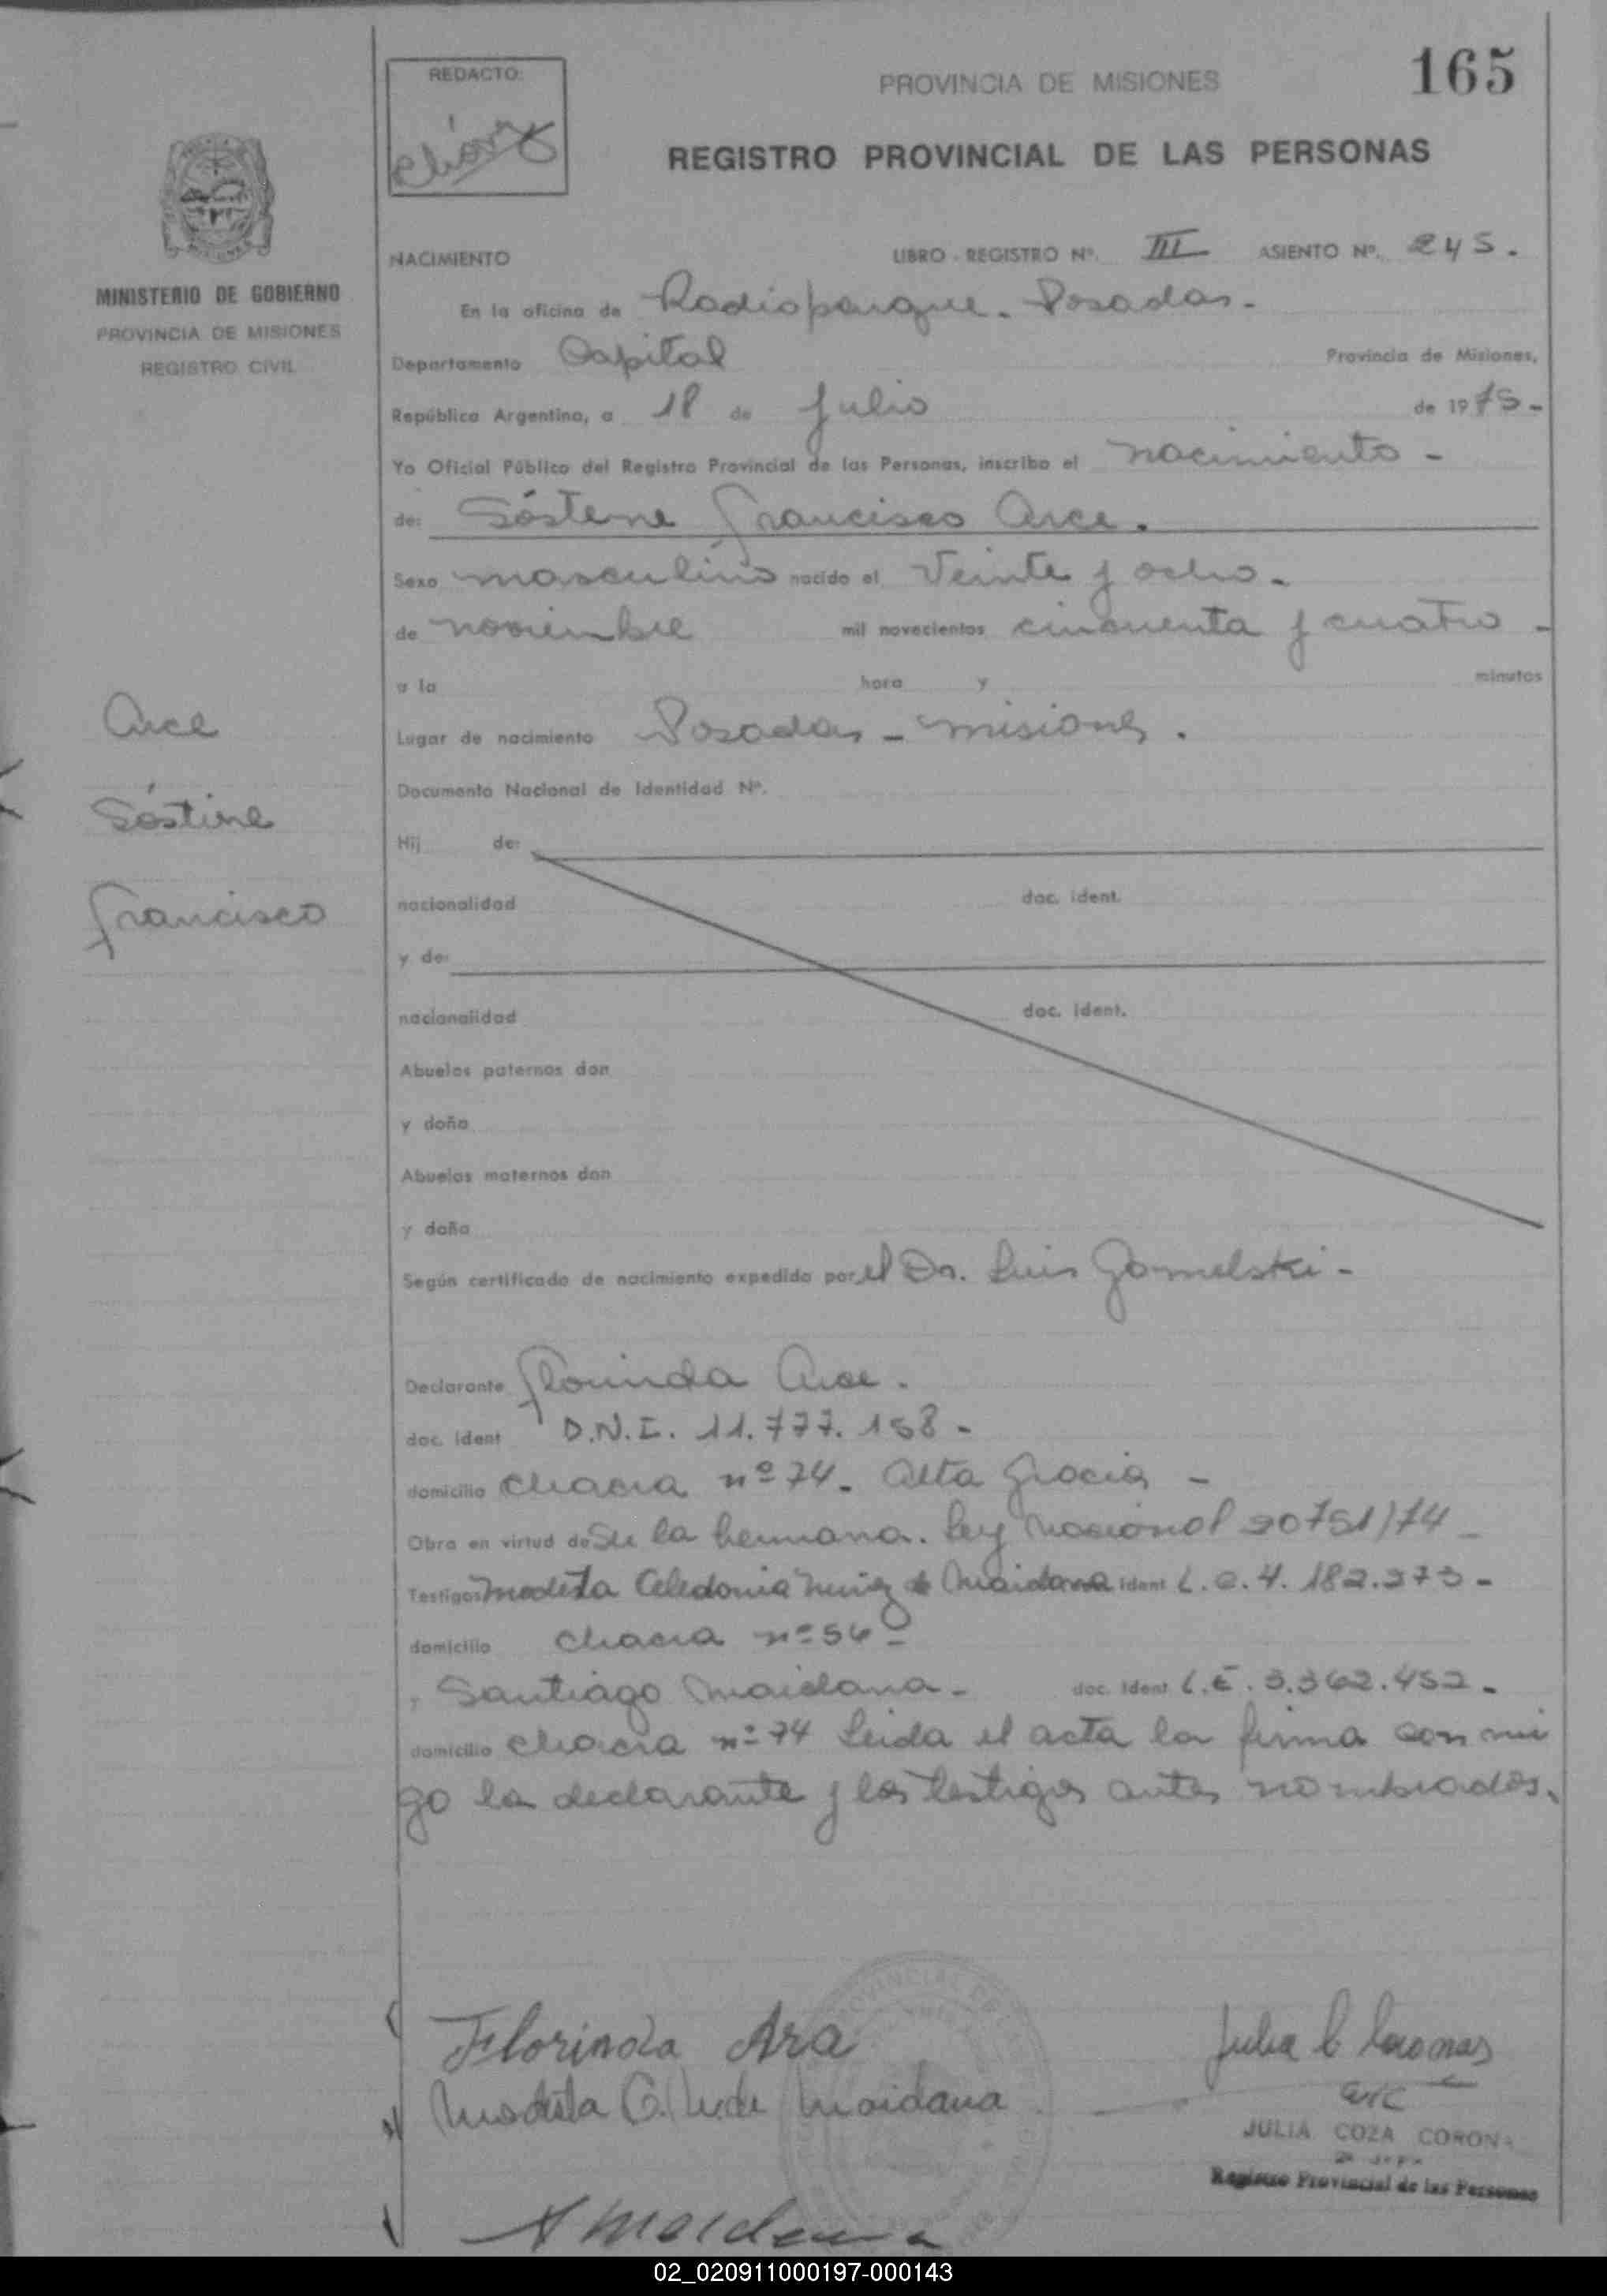 165
REDACTO:
PROVINCIA DE MISIONES
REGISTRO PROVINCIAL DE LAS PERSONAS
MINISTERIO DE GOBIERNO
PROVINCIA DE MISIONES
REGISTRO CIVIL
NACIMIENTO LIBRO - REGISTRO Nº. III ASIENTO Nº. 245.
En la oficina de Radioparque. Posadas.-
Departamento Capital Provincia de Misiones,
República Argentina, a 18 de Julio de 1975-
Yo Oficial Público del Registro Provincial de las Personas, inscribo el nacimiento -
de: Sóstene Francisco Arce.
Sexo masculino nacido el Veinte y ocho -
de noviembre mil novecientos cincuenta y cuatro -
a la hora y minutos
Arce
Lugar de nacimiento Posadas - misiones.
Documento Nacional de Identidad Nº.
Sóstine
Hij de:
Francisco
nacionalidad doc. ident.
y de:
nacionalidad doc. ident.
Abuelos paternos don
y doña
Abuelos maternos don
y doña
Según certificado de nacimiento expedido por el Dr. Luis Gomelski -
Declarante Florinda Arce.
doc. ident D.N.I. 11.777.158-
domicilio chacra nº 74. Alta Gracia -
Obra en virtud de Se la hermana. Ley Nacional 20751/74 -
Testigos Modesta Celedonia Muniz de Maidana ident L.C. 4.182.273-
domicilio chacra nº 56-
, Santiago Maidana - doc. ident L.E. 3.362.452-
domicilio chacra nº 74 Leida el acta la firma con mi
go la declarante y los testigos antes nombrados.
Florinda Ara
Modesta C. M. de Maidana
Maidana
JULIA COZA CORONA
Registro Provincial de las Personas
02_020911000197-000143